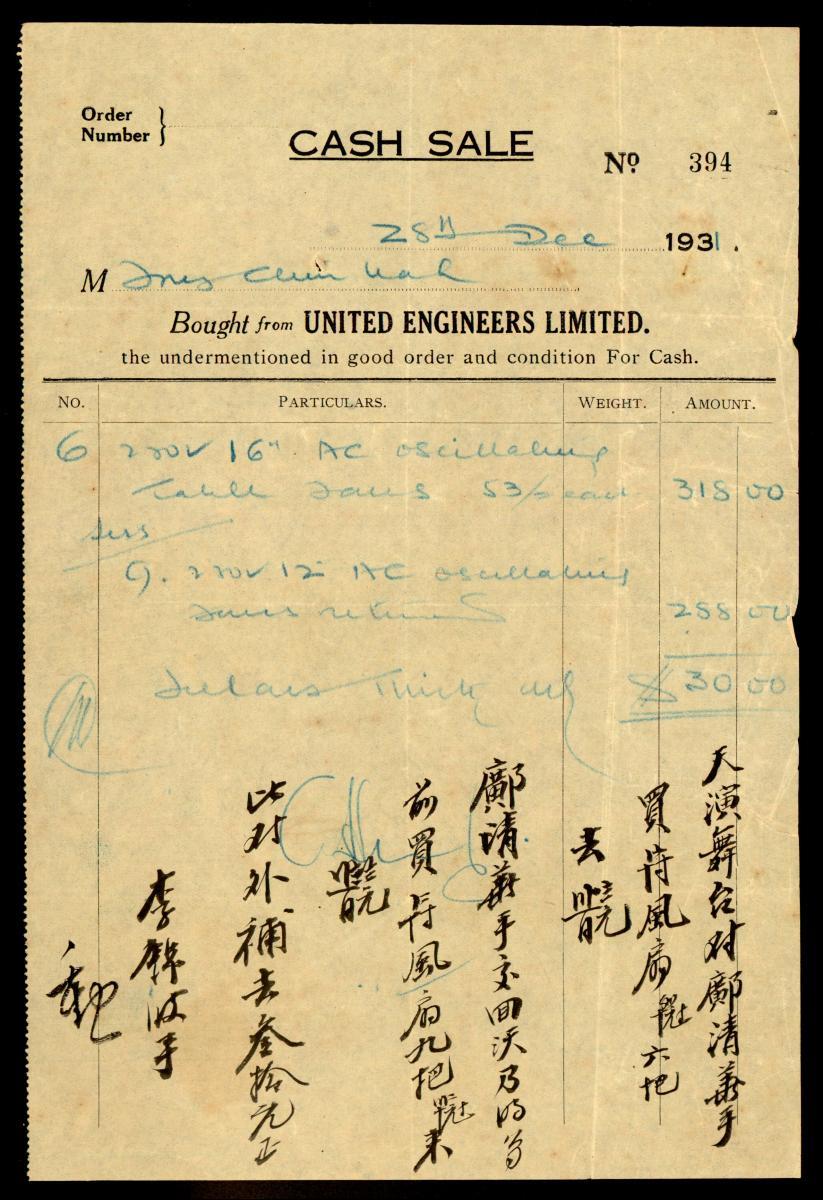 Order
Number }
CASH SALE
Nº 394
28th Dec 1931.
M Chin Wah
Bought from UNITED ENGINEERS LIMITED.
the undermentioned in good order and condition For Cash.
NO. PARTICULARS. WEIGHT. AMOUNT.
6 220V 16" AC oscillating
Table Fans 53/ each 318 00
Less
9. 220V 12" AC oscillating
Fans returned 288 00
Dollars Thirty only $ 30 00
天演舞台对鄺清華手
買 風扇 六把
去
鄺清華手交回
前買 風扇九把 来
此对外補去叁拾元正
李錦波手